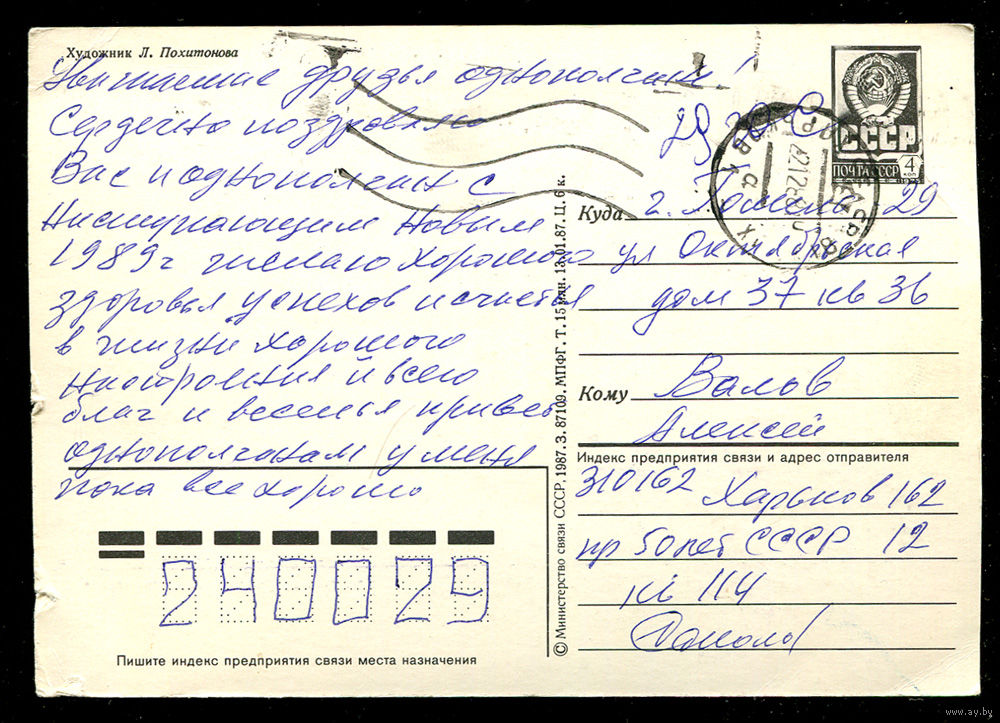 Художник Л. Похитонова
Уважаемые друзья однополчане!
Сердечно поздровляю
Вас и однополчан с
Наступающим Новым
1989г желаю хорошого
здоровья успехов и счастья
в жизни хорошого
настроения и всего
благ и веселья привет
однополчанам у меня
пока все хорошо
СССР
ПОЧТА СССР
4 коп
Куда г. Гомель 29
ул Октябрьская
дом 37 кв 36
Кому Валов
Алексей
Индекс предприятия связи и адрес отправителя
310162 Харьков 162
пр 50 лет СССР 12
кв 114
240029
Пишите индекс предприятия связи места назначения
© Министерство связи СССР, 1987. З. 87109. МПФГ. Т. 15 млн. 13.01.87. Ц. 6 к.
www.ay.by